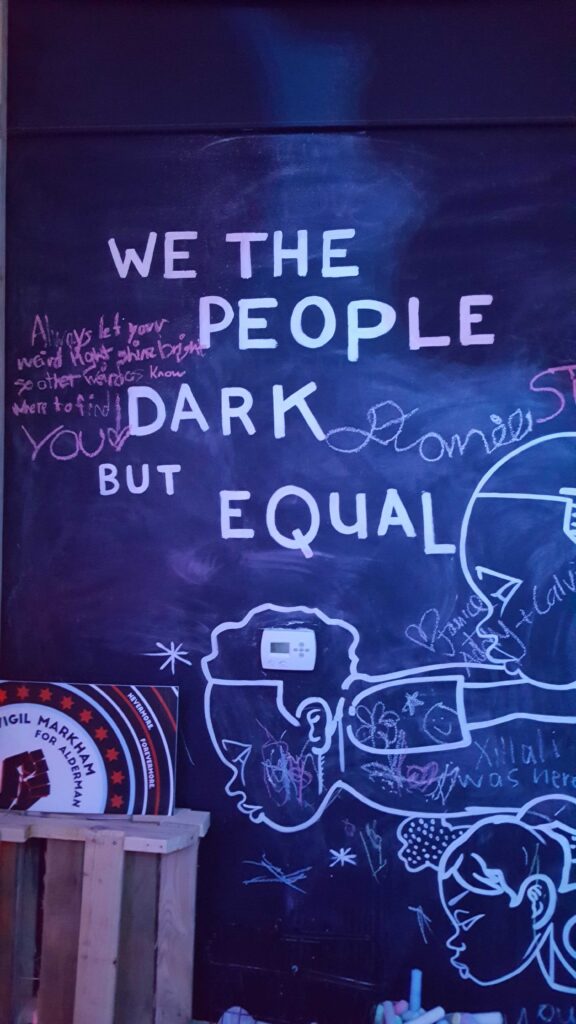 WE THE
PEOPLE
DARK
BUT
EQUAL
Always let your
weird light shine bright
so other weirdos know
where to find
YOU
ST
Janice
+ Calvi
Xillali
was here
NEVERMORE
FOREVERMORE
VIGIL MARKHAM
FOR ALDERMAN